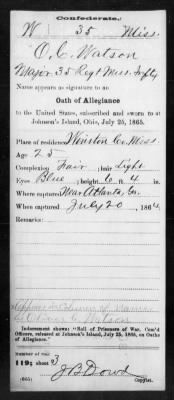 Confederate.
W 35 Miss.
O. C. Watson
Major 35 Regt Miss. Infty
Name appears as signature to an
Oath of Allegiance
to the United States, subscribed and sworn to at
Johnson's Island, Ohio, July 25, 1865.
Place of residence Winston Co. Miss.
Age 25
Complexion Fair ; hair Light
Eyes Blue ; height 6 ft. 4 in.
Where captured Near Atlanta, Ga.
When captured July 20, 1864
Remarks:
in Column of Names
as Oliver C Watson
Indorsement shows: "Roll of Prisoners of War, Con'd
Officers, released at Johnson's Island, July 25, 1865, on Oaths
of Allegiance."
Number of roll:
119; sheet 3
J B Dowd
(665) Copyist.